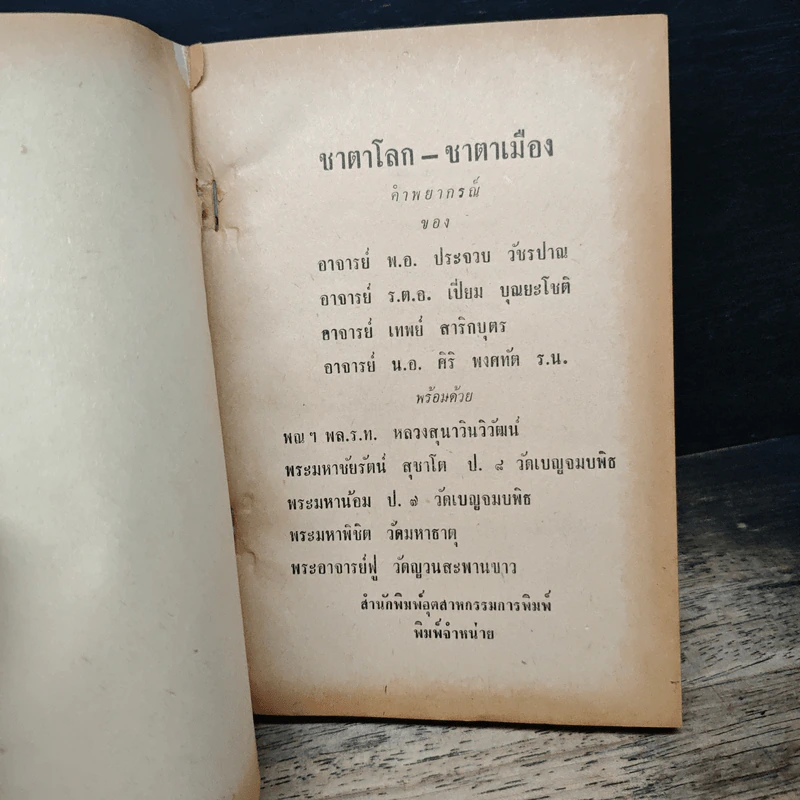 ชาตาโลก – ชาตาเมือง
คำพยากรณ์
ของ
อาจารย์ พ.อ. ประจวบ วัชรปาณ
อาจารย์ ร.ต.อ. เปี่ยม บุณยะโชติ
อาจารย์ เทพย์ สาริกบุตร
อาจารย์ น.อ. ศิริ พงศทัต ร.น.
พร้อมด้วย
พณฯ พล.ร.ท. หลวงสุนาวินวิวัฒน์
พระมหาชัยรัตน์ สุชาโต ป. ๘ วัดเบญจมบพิธ
พระมหาน้อม ป. ๗ วัดเบญจมบพิธ
พระมหาพิชิต วัดมหาธาตุ
พระอาจารย์ฟู วัดญวนสะพานขาว
สำนักพิมพ์อุตสาหกรรมการพิมพ์
พิมพ์จำหน่าย